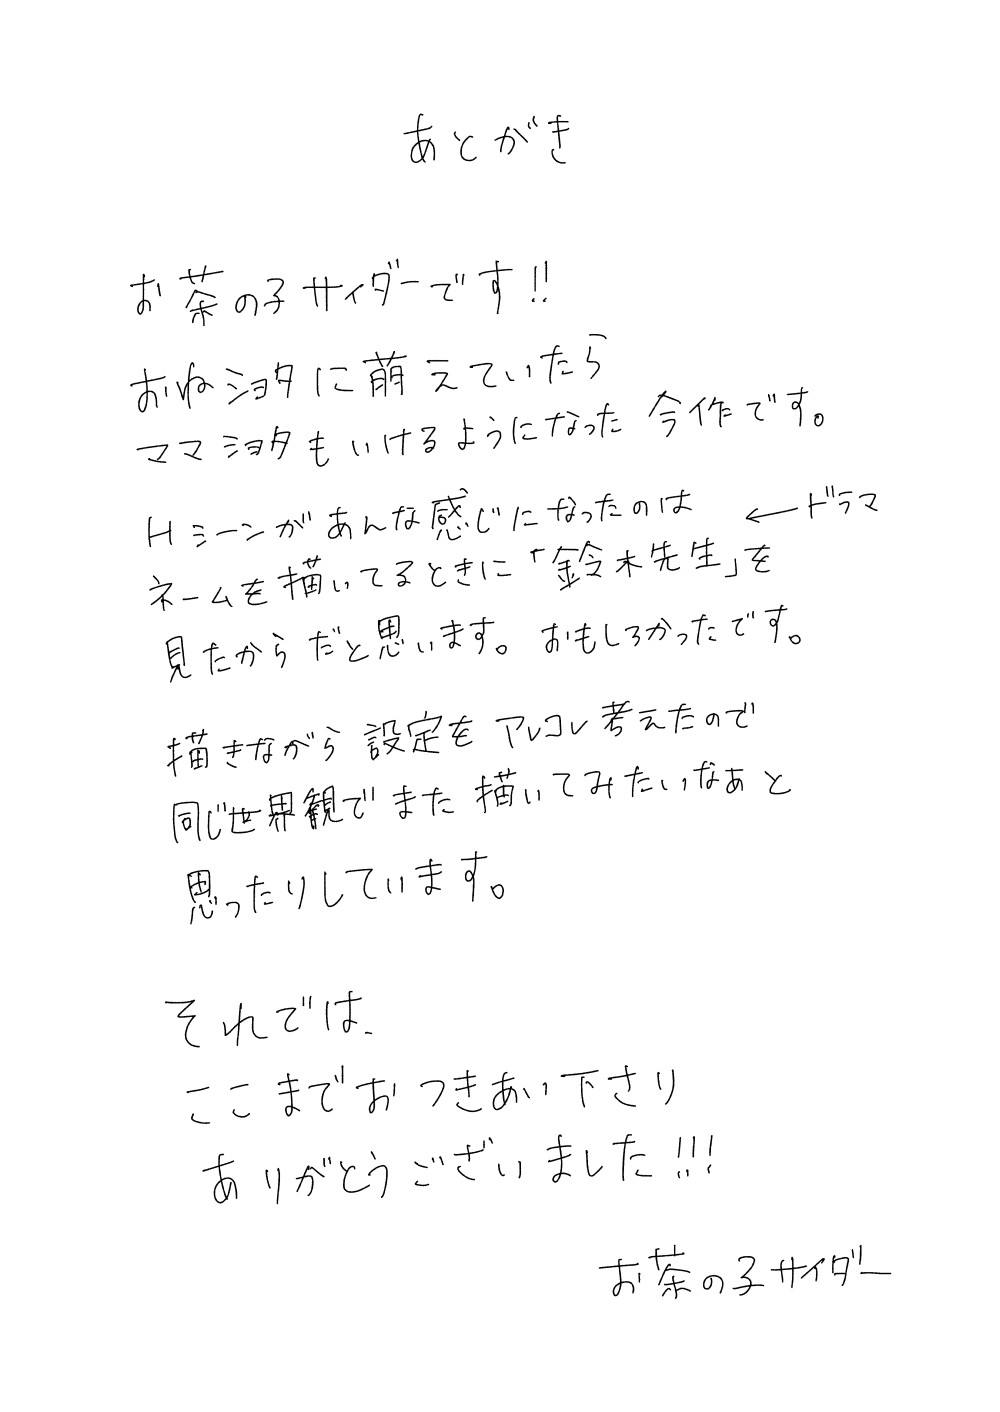 あとがき
お茶の子サイダーです!!
おねショタに萌えていたら
ママショタもいけるようになった今作です。
Hシーンがあんな感じになったのは ←ドラマ
ネームを描いてるときに「鈴木先生」を
見たからだと思います。おもしろかったです。
描きながら設定をアレコレ考えたので
同じ世界観でまた描いてみたいなぁと
思ったりしています。
それでは、
ここまでおつきあい下さり
ありがとうございました!!!
お茶の子サイダー